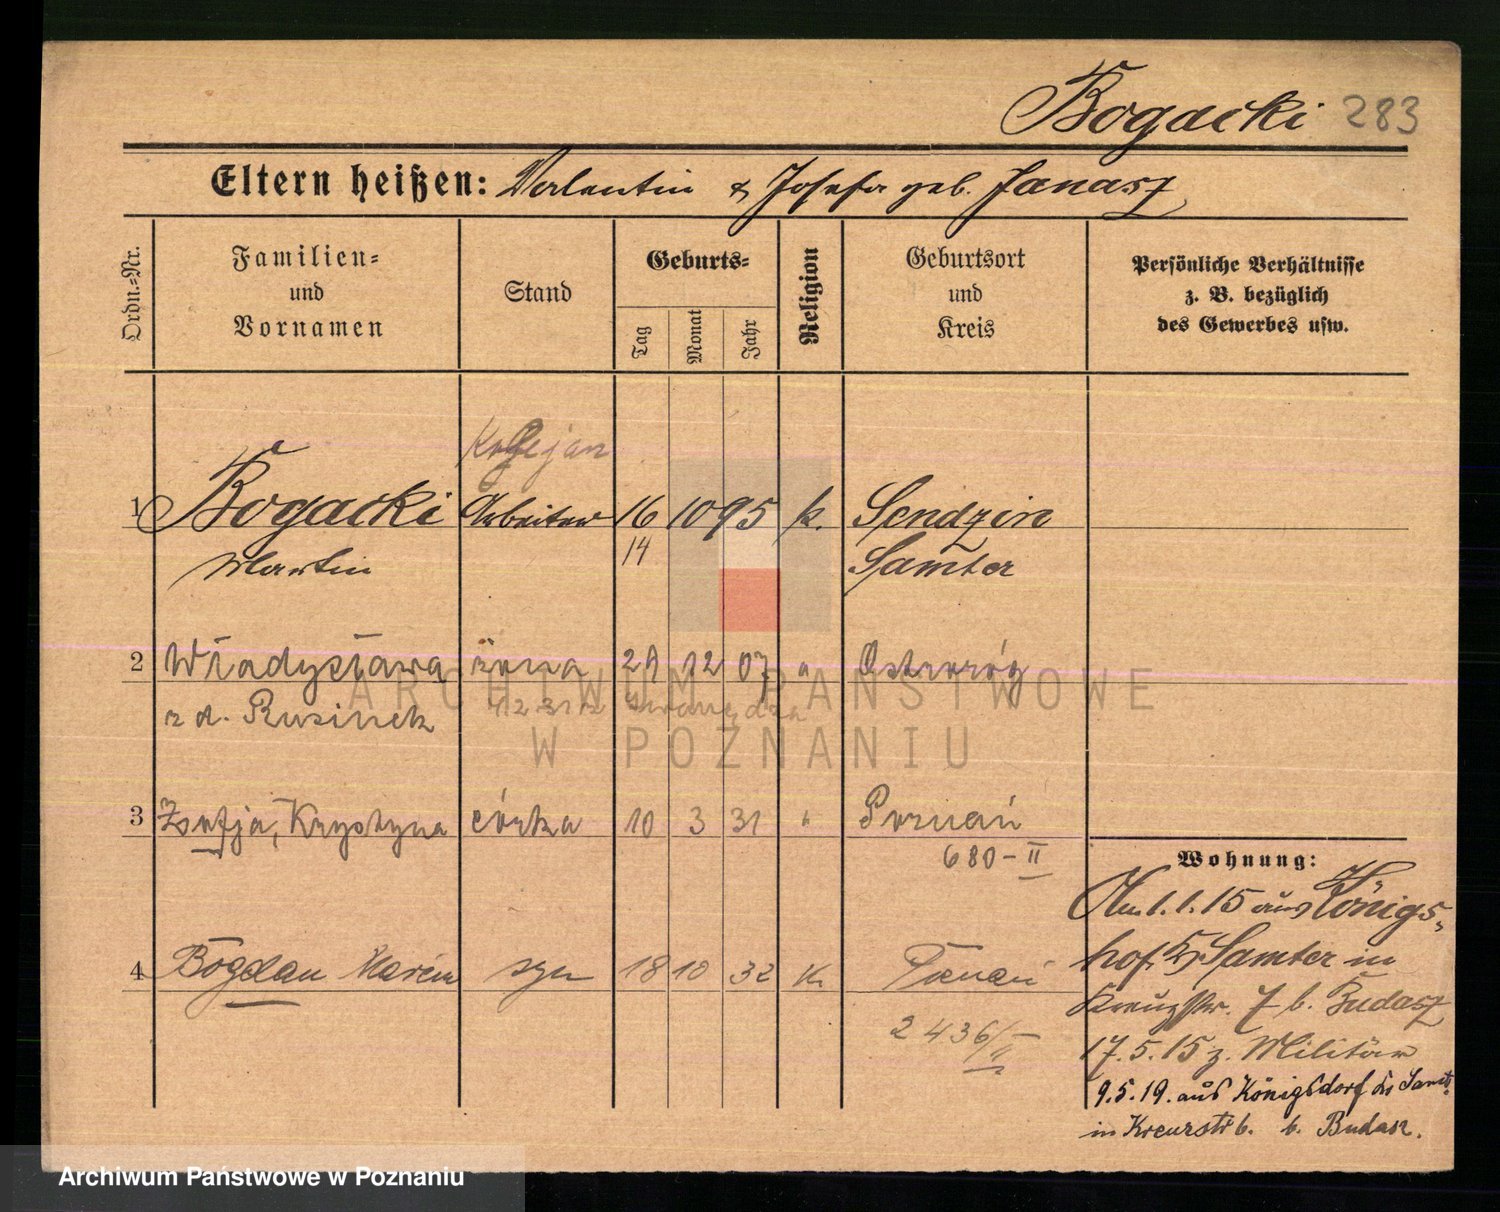 Bogacki 283
Eltern heißen: Valentin & Josefa geb. Janasz
Ordn.-Nr.
Familien-
und
Vornamen
Stand
Geburts-
Tag
Monat
Jahr
Religion
Geburtsort
und
Kreis
Persönliche Verhältnisse
z. B. bezüglich
des Gewerbes usw.
1 Bogacki Arbeiter 16 10 95 k. Sendzin
Martin 14 Samter
2 Władysława żona 21 12 07 " Ostroróg
z d. Rusinek
3 Zofja, Krystyna córka 10 3 31 " Poznań
680-II
4 Bogdan Marcin syn 18 10 32 k. Poznań
2436/II
Wohnung:
Am 1.1.15 aus Königs-
hof Kr Samter in
Kreuzstr. 7 b. Budasz
17.5.15 z. Militär
9.5.19. aus Königsdorf Kr Samt.
in Kreuzstr 6. b. Budasz.
ARCHIWUM PAŃSTWOWE
W POZNANIU
Archiwum Państwowe w Poznaniu